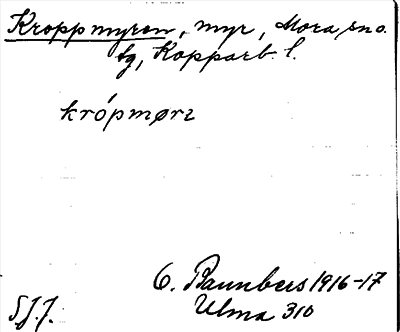 Kroppmyren, myr, Mora sno.
fg, Kopparb. l.
krópmørz
C. Baunbers 1916-17
Ulma 310
S.f.f.